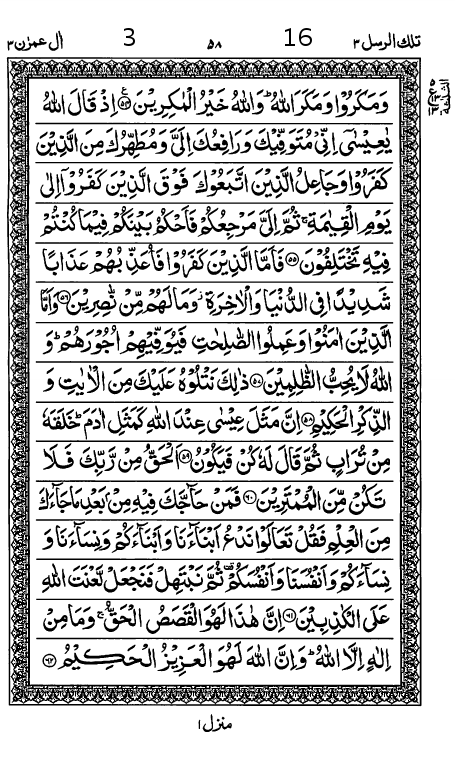 تلك الرسل ٣ 16 ٥٨ 3 اٰل عمرٰن ٣
وَمَكَرُوْا وَمَكَرَ اللّٰهُ ؕ وَاللّٰهُ خَيْرُ الْمٰكِرِيْنَ ﴿٥٤﴾ اِذْ قَالَ اللّٰهُ
يٰعِيْسٰۤى اِنِّىْ مُتَوَفِّيْكَ وَرَافِعُكَ اِلَىَّ وَمُطَهِّرُكَ مِنَ الَّذِيْنَ
كَفَرُوْا وَجَاعِلُ الَّذِيْنَ اتَّبَعُوْكَ فَوْقَ الَّذِيْنَ كَفَرُوْۤا اِلٰى
يَوْمِ الْقِيٰمَةِ ۚ ثُمَّ اِلَىَّ مَرْجِعُكُمْ فَاَحْكُمُ بَيْنَكُمْ فِيْمَا كُنْتُمْ
فِيْهِ تَخْتَلِفُوْنَ ﴿٥٥﴾ فَاَمَّا الَّذِيْنَ كَفَرُوْا فَاُعَذِّبُهُمْ عَذَابًا
شَدِيْدًا فِى الدُّنْيَا وَالْاٰخِرَةِ ؗ وَمَا لَهُمْ مِّنْ نّٰصِرِيْنَ ﴿٥٦﴾ وَاَمَّا
الَّذِيْنَ اٰمَنُوْا وَعَمِلُوا الصّٰلِحٰتِ فَيُوَفِّيْهِمْ اُجُوْرَهُمْ ؕ وَ
اللّٰهُ لَا يُحِبُّ الظّٰلِمِيْنَ ﴿٥٧﴾ ذٰلِكَ نَتْلُوْهُ عَلَيْكَ مِنَ الْاٰيٰتِ وَ
الذِّكْرِ الْحَكِيْمِ ﴿٥٨﴾ اِنَّ مَثَلَ عِيْسٰى عِنْدَ اللّٰهِ كَمَثَلِ اٰدَمَ ؕ خَلَقَهٗ
مِنْ تُرَابٍ ثُمَّ قَالَ لَهٗ كُنْ فَيَكُوْنُ ﴿٥٩﴾ اَلْحَقُّ مِنْ رَّبِّكَ فَلَا
تَكُنْ مِّنَ الْمُمْتَرِيْنَ ﴿٦٠﴾ فَمَنْ حَآجَّكَ فِيْهِ مِنْۢ بَعْدِ مَا جَآءَكَ
مِنَ الْعِلْمِ فَقُلْ تَعَالَوْا نَدْعُ اَبْنَآءَنَا وَاَبْنَآءَكُمْ وَنِسَآءَنَا وَ
نِسَآءَكُمْ وَاَنْفُسَنَا وَاَنْفُسَكُمْ ۫ ثُمَّ نَبْتَهِلْ فَنَجْعَلْ لَّعْنَتَ اللّٰهِ
عَلَى الْكٰذِبِيْنَ ﴿٦١﴾ اِنَّ هٰذَا لَهُوَ الْقَصَصُ الْحَقُّ ۚ وَمَا مِنْ
اِلٰهٍ اِلَّا اللّٰهُ ؕ وَاِنَّ اللّٰهَ لَهُوَ الْعَزِيْزُ الْحَكِيْمُ ﴿٦٢﴾
منزل ١